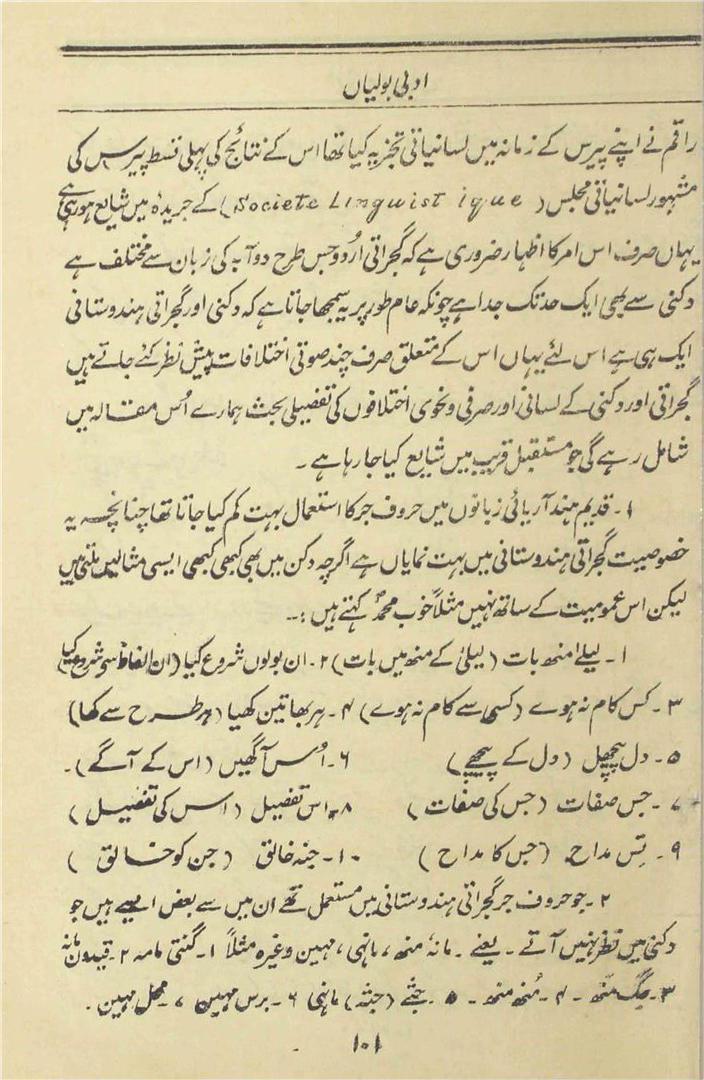 ادبی بولیاں
راقم نے اپنے پیرس کے زمانہ میں لسانیاتی تجزیہ کیا تھا اس کے نتائج کی پہلی قسط پیرس کی
مشہور لسانیاتی مجلس (Societe Linguist ique) کے جریدہ میں شایع ہورہی ہے
یہاں صرف اس امر کا اظہار ضروری ہے کہ گجراتی اُردو جس طرح دوآبہ کی زبان سے مختلف ہے
دکنی سے بھی ایک حد تک جدا ہے چونکہ عام طور پر یہ سمجھا جاتا ہے کہ دکنی اور گجراتی ہندوستانی
ایک ہی ہے اس لئے یہاں اس کے متعلق صرف چند صوتی اختلافات پیش نظر کئے جاتے ہیں
گجراتی اور دکنی کے لسانی اور صرفی و نحوی اختلافوں کی تفصیلی بحث ہمارے اُس مقالہ میں
شامل رہے گی جو مستقبل قریب میں شایع کیا جارہا ہے ۔
۱۔ قدیم ہند آریائی زبانوں میں حروف جر کا استعمال بہت کم کیا جاتا تھا چنانچہ یہ
خصوصیت گجراتی ہندوستانی میں بہت نمایاں ہے اگرچہ دکن میں بھی کبھی کبھی ایسی مثالیں ملتی ہیں
لیکن اس عمومیت کے ساتھ نہیں مثلاً خوب محمدؐ کہتے ہیں :۔
۱۔ لیلےٰ منھ بات (لیلیٰ کے منھ میں بات) ۲۔ ان بولوں شروع کیا (ان الفاظ سے شروع کیا)
۳۔ کس کام نہ ہوے (کسی سے کام نہ ہوے) ۴۔ ہر بھاتیں کھیا (ہر طرح سے کہا)
۵۔ دل پیچھل (دل کے پیچھے) ۶۔ اُس آگھیں (اس کے آگے)۔
۷۔ جس صفات (جس کی صفات) ۸۔ اس تفصیل (اس کی تفصیل)
۹۔ تِس مداح (جس کا مداح) ۱۰۔ جنہ خالق (جن کو خالق)
۲۔ جو حروف جر گجراتی ہندوستانی میں مستعمل تھے ان میں سے بعض ایسے ہیں جو
دکنی میں نظر نہیں آتے ۔ یعنے ۔ مانہ منھ، مانہی، مہیں وغیرہ مثلاً ۱۔ گنتی مامہ ۲۔ قیدوں مانہ
۳۔ جگ منھ ۔ ۴۔ مُنھ منھ ۔ ۵۔ جثے (جثہ) مانہی ۶۔ برس مہیں ۷۔ محل مہیں ۔
۱۰۱